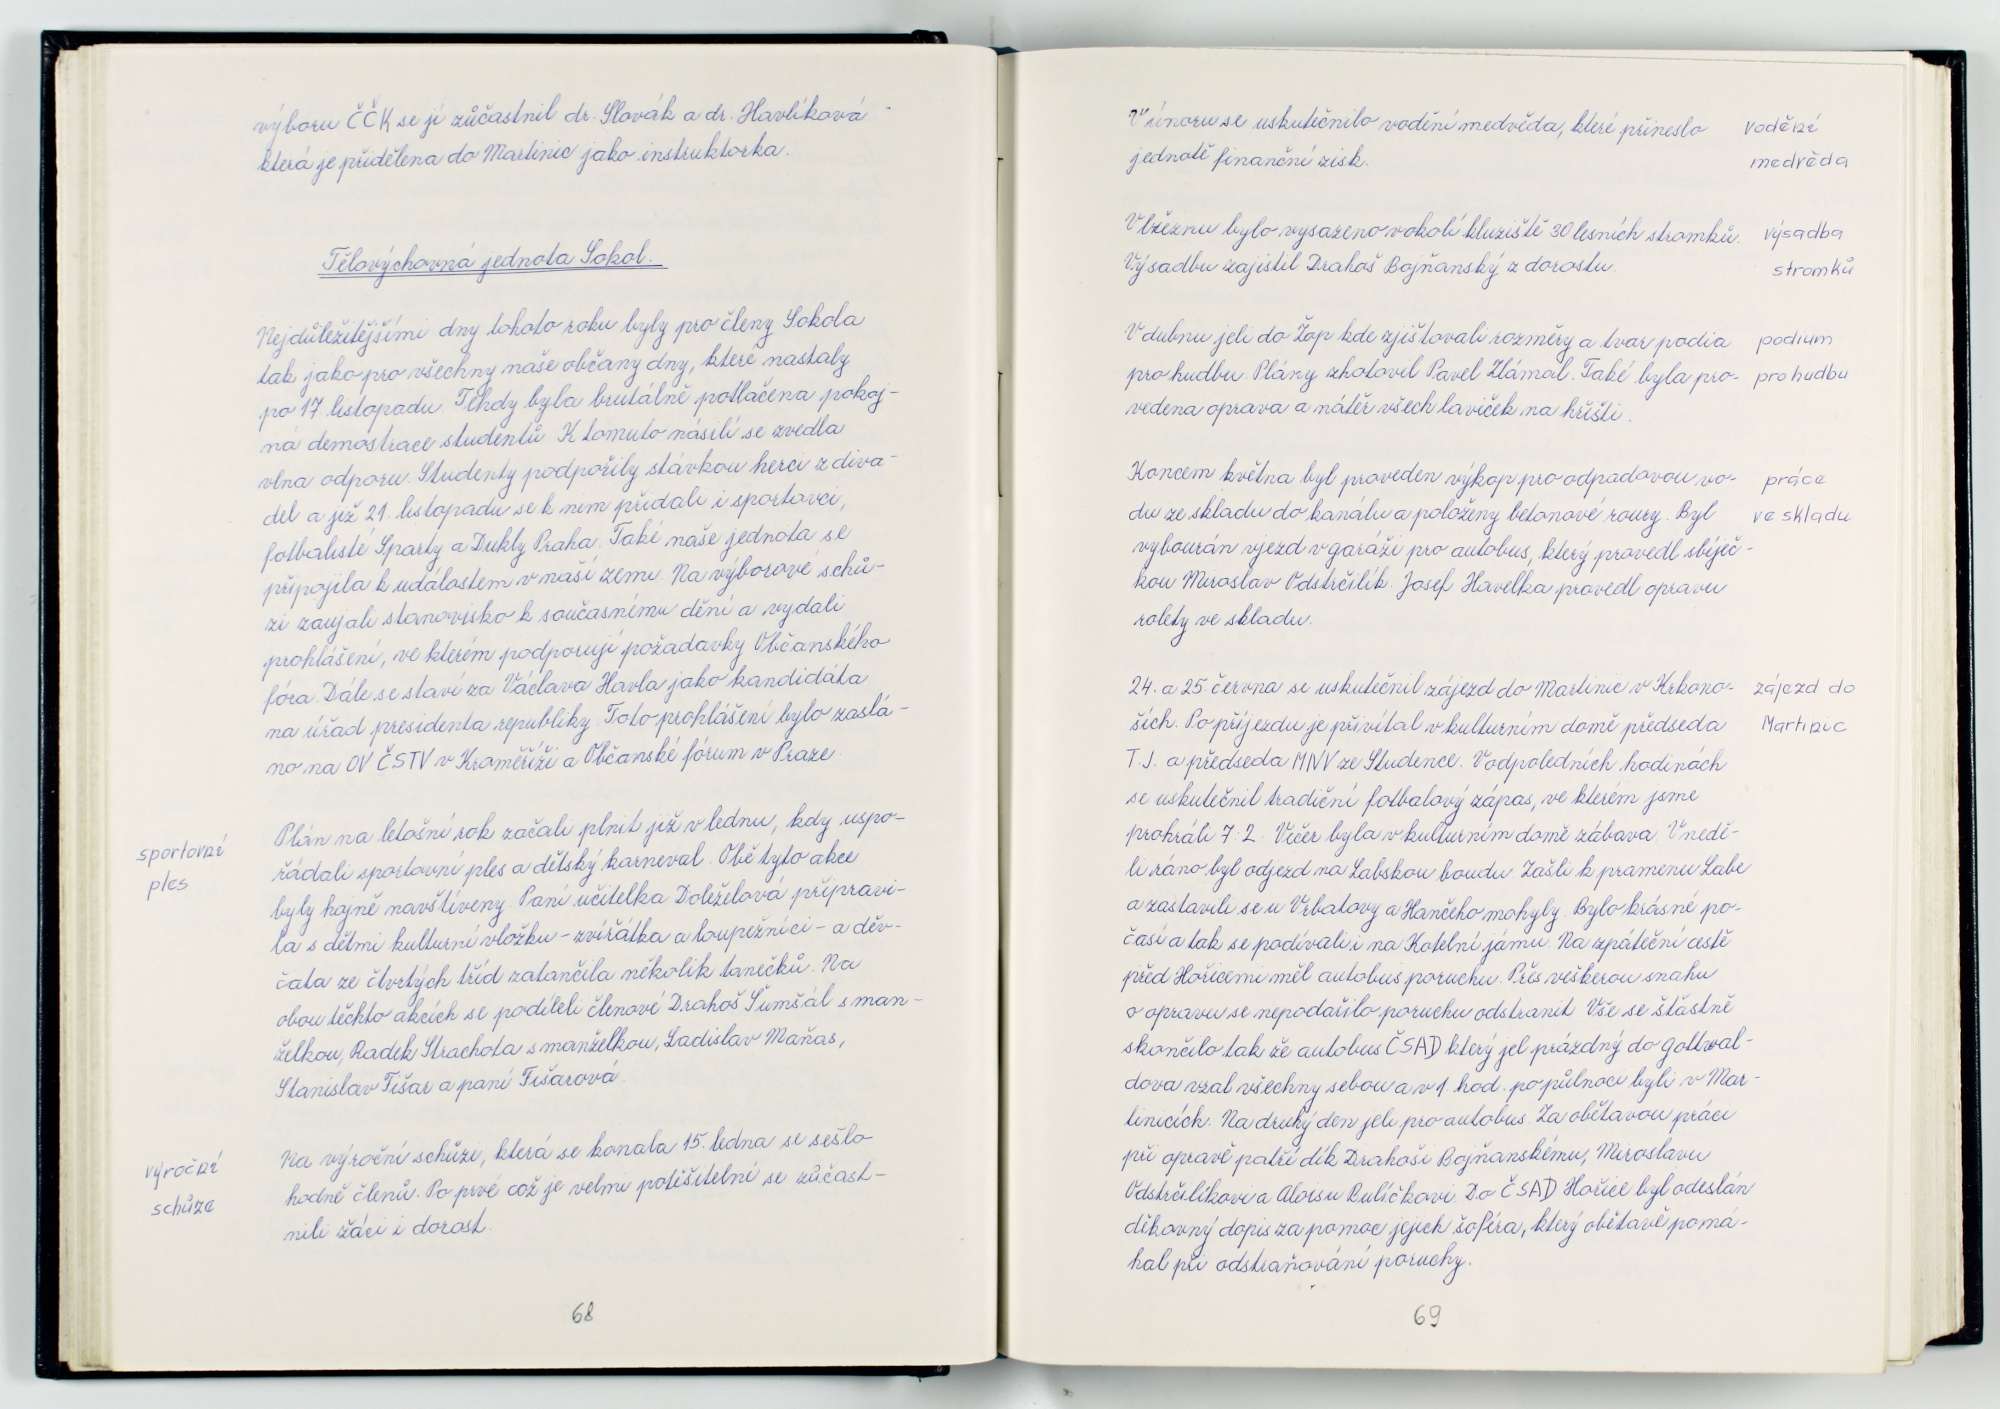 výboru ČČK se jí zůčastnil dr. Slovák a dr. Havlíková
která je přidělena do Martinic jako instruktorka.
Tělovýchovná jednota Sokol.
Nejdůležitějšími dny tohoto roku byly pro členy Sokola
tak jako pro všechny naše občany dny, které nastaly
po 17 listopadu. Tehdy byla brutálně potlačena pokoj-
ná demostrace studentů. K tomuto násilí se zvedla
vlna odporu. Studenty podpořily stávkou herci z diva-
del a již 21. listopadu se k nim přidali i sportovci,
fotbalisté Sparty a Dukly Praha. Také naše jednota se
připojila k událostem v naší zemi. Na výborové schů-
zi zaujali stanovisko k současnému dění a vydali
prohlášení, ve kterém podporují požadavky Občanského
fóra. Dále se staví za Václava Havla jako kandidáta
na úřad presidenta republiky. Toto prohlášení bylo zaslá-
no na OV ČSTV v Kroměříži a Občanské fórum v Praze.
sportovní
ples
Plán na letošní rok začali plnit již v lednu, kdy uspo-
řádali sportovní ples a dětský karneval. Obě tyto akce
byly hojně navštíveny. Paní učitelka Doleželová připravi-
la s dětmi kulturní vložku - zvířátka a loupežníci - a děv-
čata ze čtvrtých tříd zatančila několik tanečků. Na
obou těchto akcích se podíleli členové Drahoš Šumšál s man-
želkou, Radek Strachota s manželkou, Ladislav Maňas,
Stanislav Tišar a paní Tišarová.
výroční
schůze
Na výroční schůzi, která se konala 15. ledna se sešlo
hodně členů. Po prvé což je velmi potěšitelní se zůčast-
nili žáci i dorost.
68
V únoru se uskutečnilo vodění medvěda, které přineslo
jednotě finanční zisk.
vodění
medvěda
V březnu bylo vysazeno v okolí kluziště 30 lesních stromků.
Výsadbu zajistil Drahoš Bojňanský z dorostu.
výsadba
stromků
V dubnu jeli do Žop kde zjišťovali rozměry a tvar podia
pro hudbu. Plány zhotovil Pavel Zlámal. Také byla pro-
vedena oprava a nátěr všech laviček na hřišti.
podium
pro hudbu
Koncem května byl proveden výkop pro odpadovou vo-
du ze skladu do kanálu a položeny betonové roury. Byl
vybourán vjezd v garáži pro autobus, který provedl sbíječ-
kou Miroslav Odstrčilík. Josef Havelka provedl opravu
rolety ve skladu.
práce
ve skladu
24. a 25. června se uskutečnil zájezd do Martinic v Krkono-
ších. Po příjezdu je přivítal v kulturním domě předseda
T.J. a předseda MNV ze Studence. V odpoledních hodinách
se uskutečnil tradiční fotbalový zápas, ve kterém jsme
prohráli 7:2. Večer byla v kulturním domě zábava. V nedě-
li ráno byl odjezd na Labskou boudu. Zašli k pramenu Labe
a zastavili se u Vrbatovy a Hančeho mohyly. Bylo krásné po-
časí a tak se podívali i na Kotelní jámu. Na zpáteční cestě
před Hořicemi měl autobus poruchu. Přes veškerou snahu
o opravu se nepodařilo poruchu odstranit. Vše se šťastně
skončilo tak že autobus ČSAD který jel prázdný do Gottwal-
dova vzal všechny sebou a v 1 hod. po půlnoci byli v Mar-
tinicích. Na druhý den jeli pro autobus. Za obětavou práci
při opravě patří dík Drahoši Bojňanskému, Miroslavu
Odstrčilíkovi a Aloisu Kulíčkovi. Do ČSAD Hořice byl odeslán
děkovný dopis za pomoc jejich šoféra, který obětavě pomá-
hal při odstraňování poruchy.
zájezd do
Martinic
69